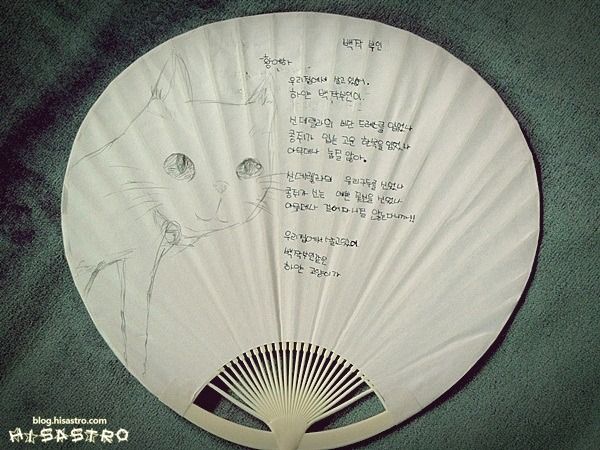 백작 부인
황연하
우리집에서 살고 있어.
하얀 백작부인이.
신데렐라의 비단 드레스를 입었나
콩쥐가 입는 고운 한복을 입었나
아무데나 눕질 않아.
신데렐라의 유리구두를 신었나
콩쥐가 신는 예쁜 꽃신을 신었나
아무데나 걸어다니질 않는다니까!!
우리집에서 살고있어
백작부인같은
하얀 고양이가
blog.hisastro.com
HISASTRO